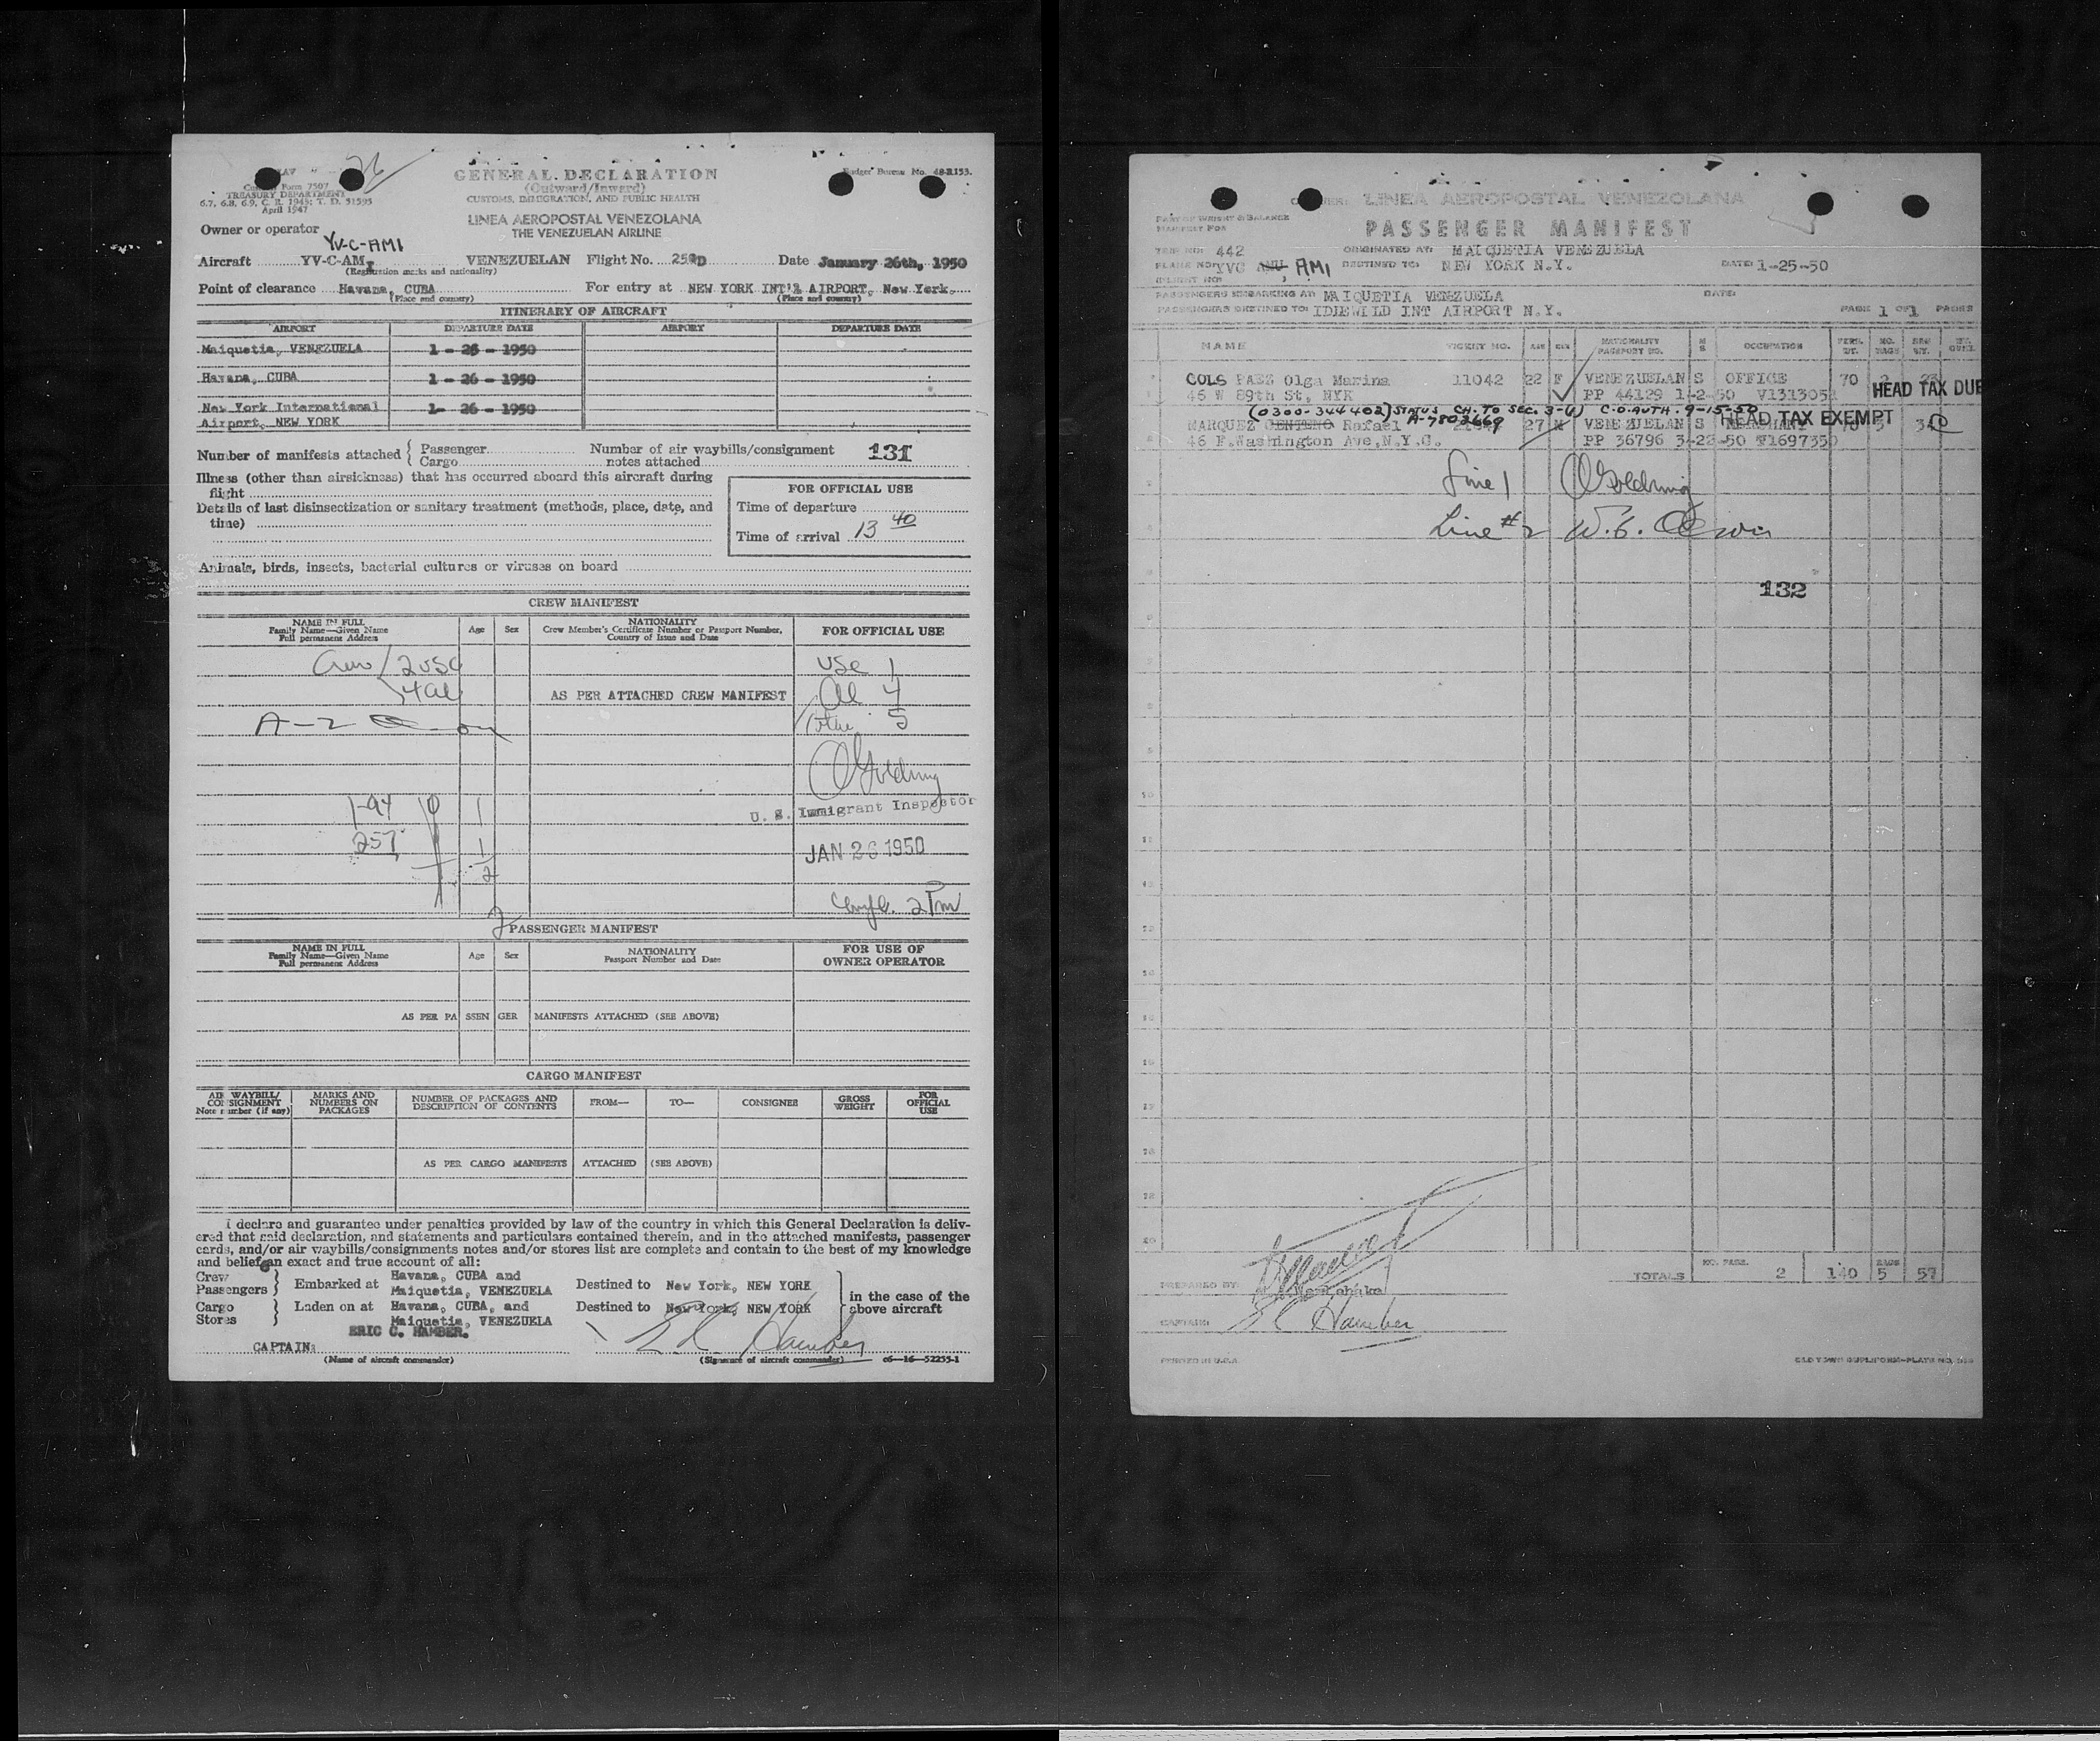 26
Customs Form 7507
TREASURY DEPARTMENT
6.7, 6.8, 6.9, C. R. 1943; T. D. 51595
April 1947
GENERAL DECLARATION
(Outward/Inward)
CUSTOMS, IMMIGRATION, AND PUBLIC HEALTH
Budget Bureau No. 48-R153.
LINEA AEROPOSTAL VENEZOLANA
THE VENEZUELAN AIRLINE
Owner or operator
YV-C-AMI
Aircraft YV-C-AM VENEZUELAN Flight No. Date January 26th, 1950
(Registration marks and nationality)
Point of clearance Havana, CUBA For entry at NEW YORK INT'L AIRPORT, New York.
(Place and country) (Place and country)
ITINERARY OF AIRCRAFT
AIRPORT DEPARTURE DATE AIRPORT DEPARTURE DATE
Maiquetia, VENEZUELA 1 - 26 - 1950
Havana, CUBA 1 - 26 - 1950
New York International 1- 26 - 1950
Airport, NEW YORK
Number of manifests attached { Passenger Number of air waybills/consignment 131
Cargo notes attached
Illness (other than airsickness) that has occurred aboard this aircraft during
flight
FOR OFFICIAL USE
Details of last disinsectization or sanitary treatment (methods, place, date, and
time)
Time of departure
Time of arrival 13 40
Animals, birds, insects, bacterial cultures or viruses on board
CREW MANIFEST
NAME IN FULL
Family Name—Given Name
Full permanent Address
Age Sex
NATIONALITY
Crew Member's Certificate Number or Passport Number,
Country of Issue and Date
FOR OFFICIAL USE
Crew / 2 USC USC 1
4 al AS PER ATTACHED CREW MANIFEST al 4
A-2 5
O Goldring
U. S. Immigrant Inspector
I-94 1
257 1
JAN 26 1950
2
2 Pm
2 PASSENGER MANIFEST
NAME IN FULL
Family Name—Given Name
Full permanent Address
Age Sex
NATIONALITY
Passport Number and Date
FOR USE OF
OWNER OPERATOR
AS PER PA SSEN GER MANIFESTS ATTACHED (SEE ABOVE)
CARGO MANIFEST
AIR WAYBILL/
CONSIGNMENT
Note number (if any)
MARKS AND
NUMBERS ON
PACKAGES
NUMBER OF PACKAGES AND
DESCRIPTION OF CONTENTS
FROM— TO— CONSIGNEE
GROSS
WEIGHT
FOR
OFFICIAL
USE
AS PER CARGO MANIFESTS ATTACHED (SEE ABOVE)
I declare and guarantee under penalties provided by law of the country in which this General Declaration is deliv-
ered that said declaration, and statements and particulars contained therein, and in the attached manifests, passenger
cards, and/or air waybills/consignments notes and/or stores list are complete and contain to the best of my knowledge
and belief an exact and true account of all:
Crew
Passengers } Embarked at Havana, CUBA and
Maiquetia, VENEZUELA
Destined to New York, NEW YORK
Cargo
Stores } Laden on at Havana, CUBA, and
Maiquetia, VENEZUELA
Destined to New York, NEW YORK
} in the case of the
above aircraft
ERIC C. HAMBER.
CAPTAIN:
E. C. Hamber
(Name of aircraft commander) (Signature of aircraft commander) c6—16—52255-1
LINEA AEROPOSTAL VENEZOLANA
PART OF WEIGHT & BALANCE
MANIFEST FOR
PASSENGER MANIFEST
TRIP NO: 442 ORIGINATED AT: MAIQUETIA VENEZUELA
PLANE NO: YVC AMU, AMI DESTINED TO: NEW YORK N.Y. DATE: 1-25-50
PASSENGERS EMBARKING AT: MAIQUETIA VENEZUELA DATE:
PASSENGERS DESTINED TO: IDLEWILD INT AIRPORT N.Y. PAGE 1 OF 1 PAGES
NAME TICKET NO. AGE SEX NATIONALITY PASSPORT NO. M S OCCUPATION PERS. WT. NO. BAGS BAG WT.
COLS PAEZ Olga Marina 11042 22 F VENEZUELAN S OFFICE 70 2 23
46 W 89th St, NYK PP 44129 1-2-50 V1313051 HEAD TAX DUE
(0300-344402) STATUS CH. TO SEC. 3-(1) C.O. AUTH. 9-15-50
A-7803669 HEAD TAX EXEMPT
MARQUEZ CENTENO Rafael 27 M VENEZUELAN S MERCHANT 70 3 34
46 F.Washington Ave,N.Y.C. PP 36796 3-22-50 V1697350
Line 1 O Goldring
Line # 2 W. G.
132
TOTALS NO. PASS. 2 140 BAGS 5 57
PREPARED BY:
CAPTAIN: E C Hamber
PRINTED IN U.S.A.